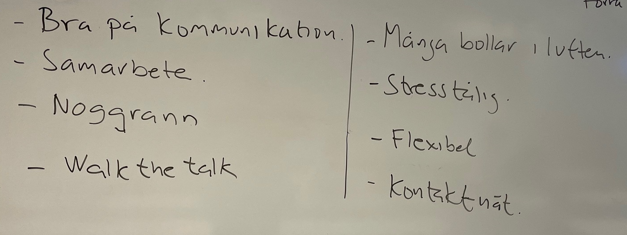 - Bra på kommunikation.
- Samarbete.
- Noggrann
- Walk the talk
- Många bollar i luften.
- Stresstålig.
- Flexibel
- Kontaktnät.